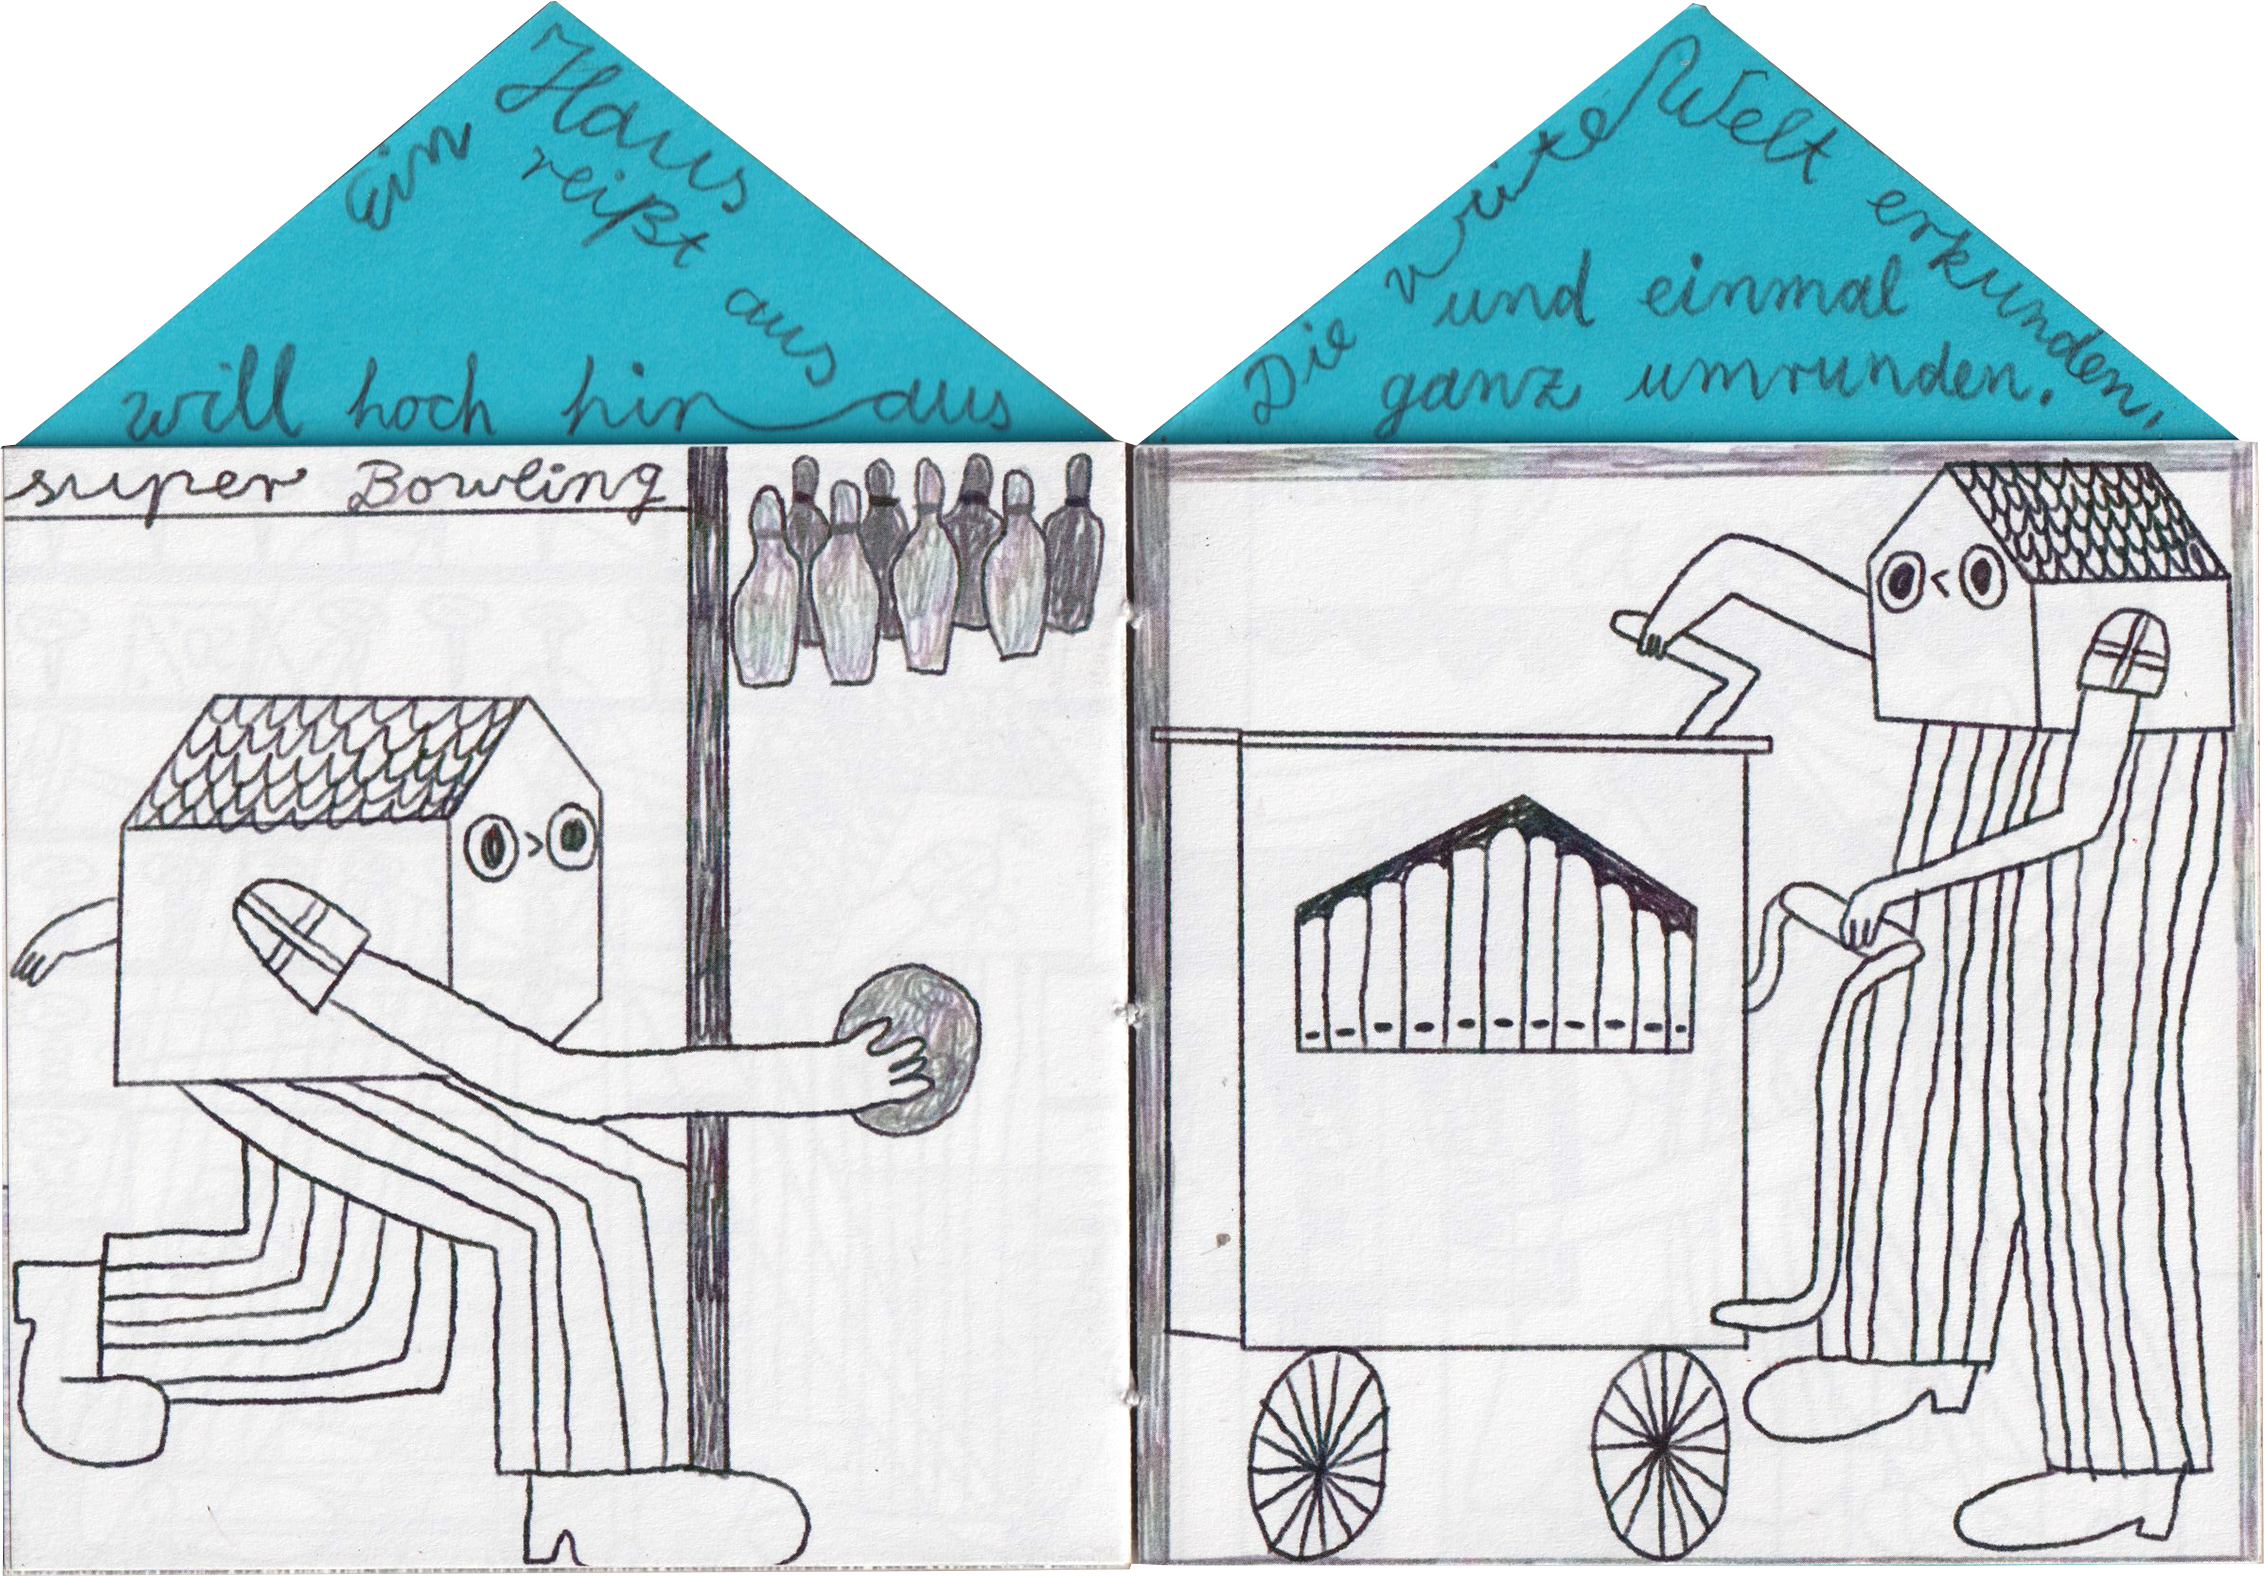 Ein Haus
reißt aus
will hoch hinaus
Die weite Welt erkunden,
und einmal
ganz umrunden.
super Bowling